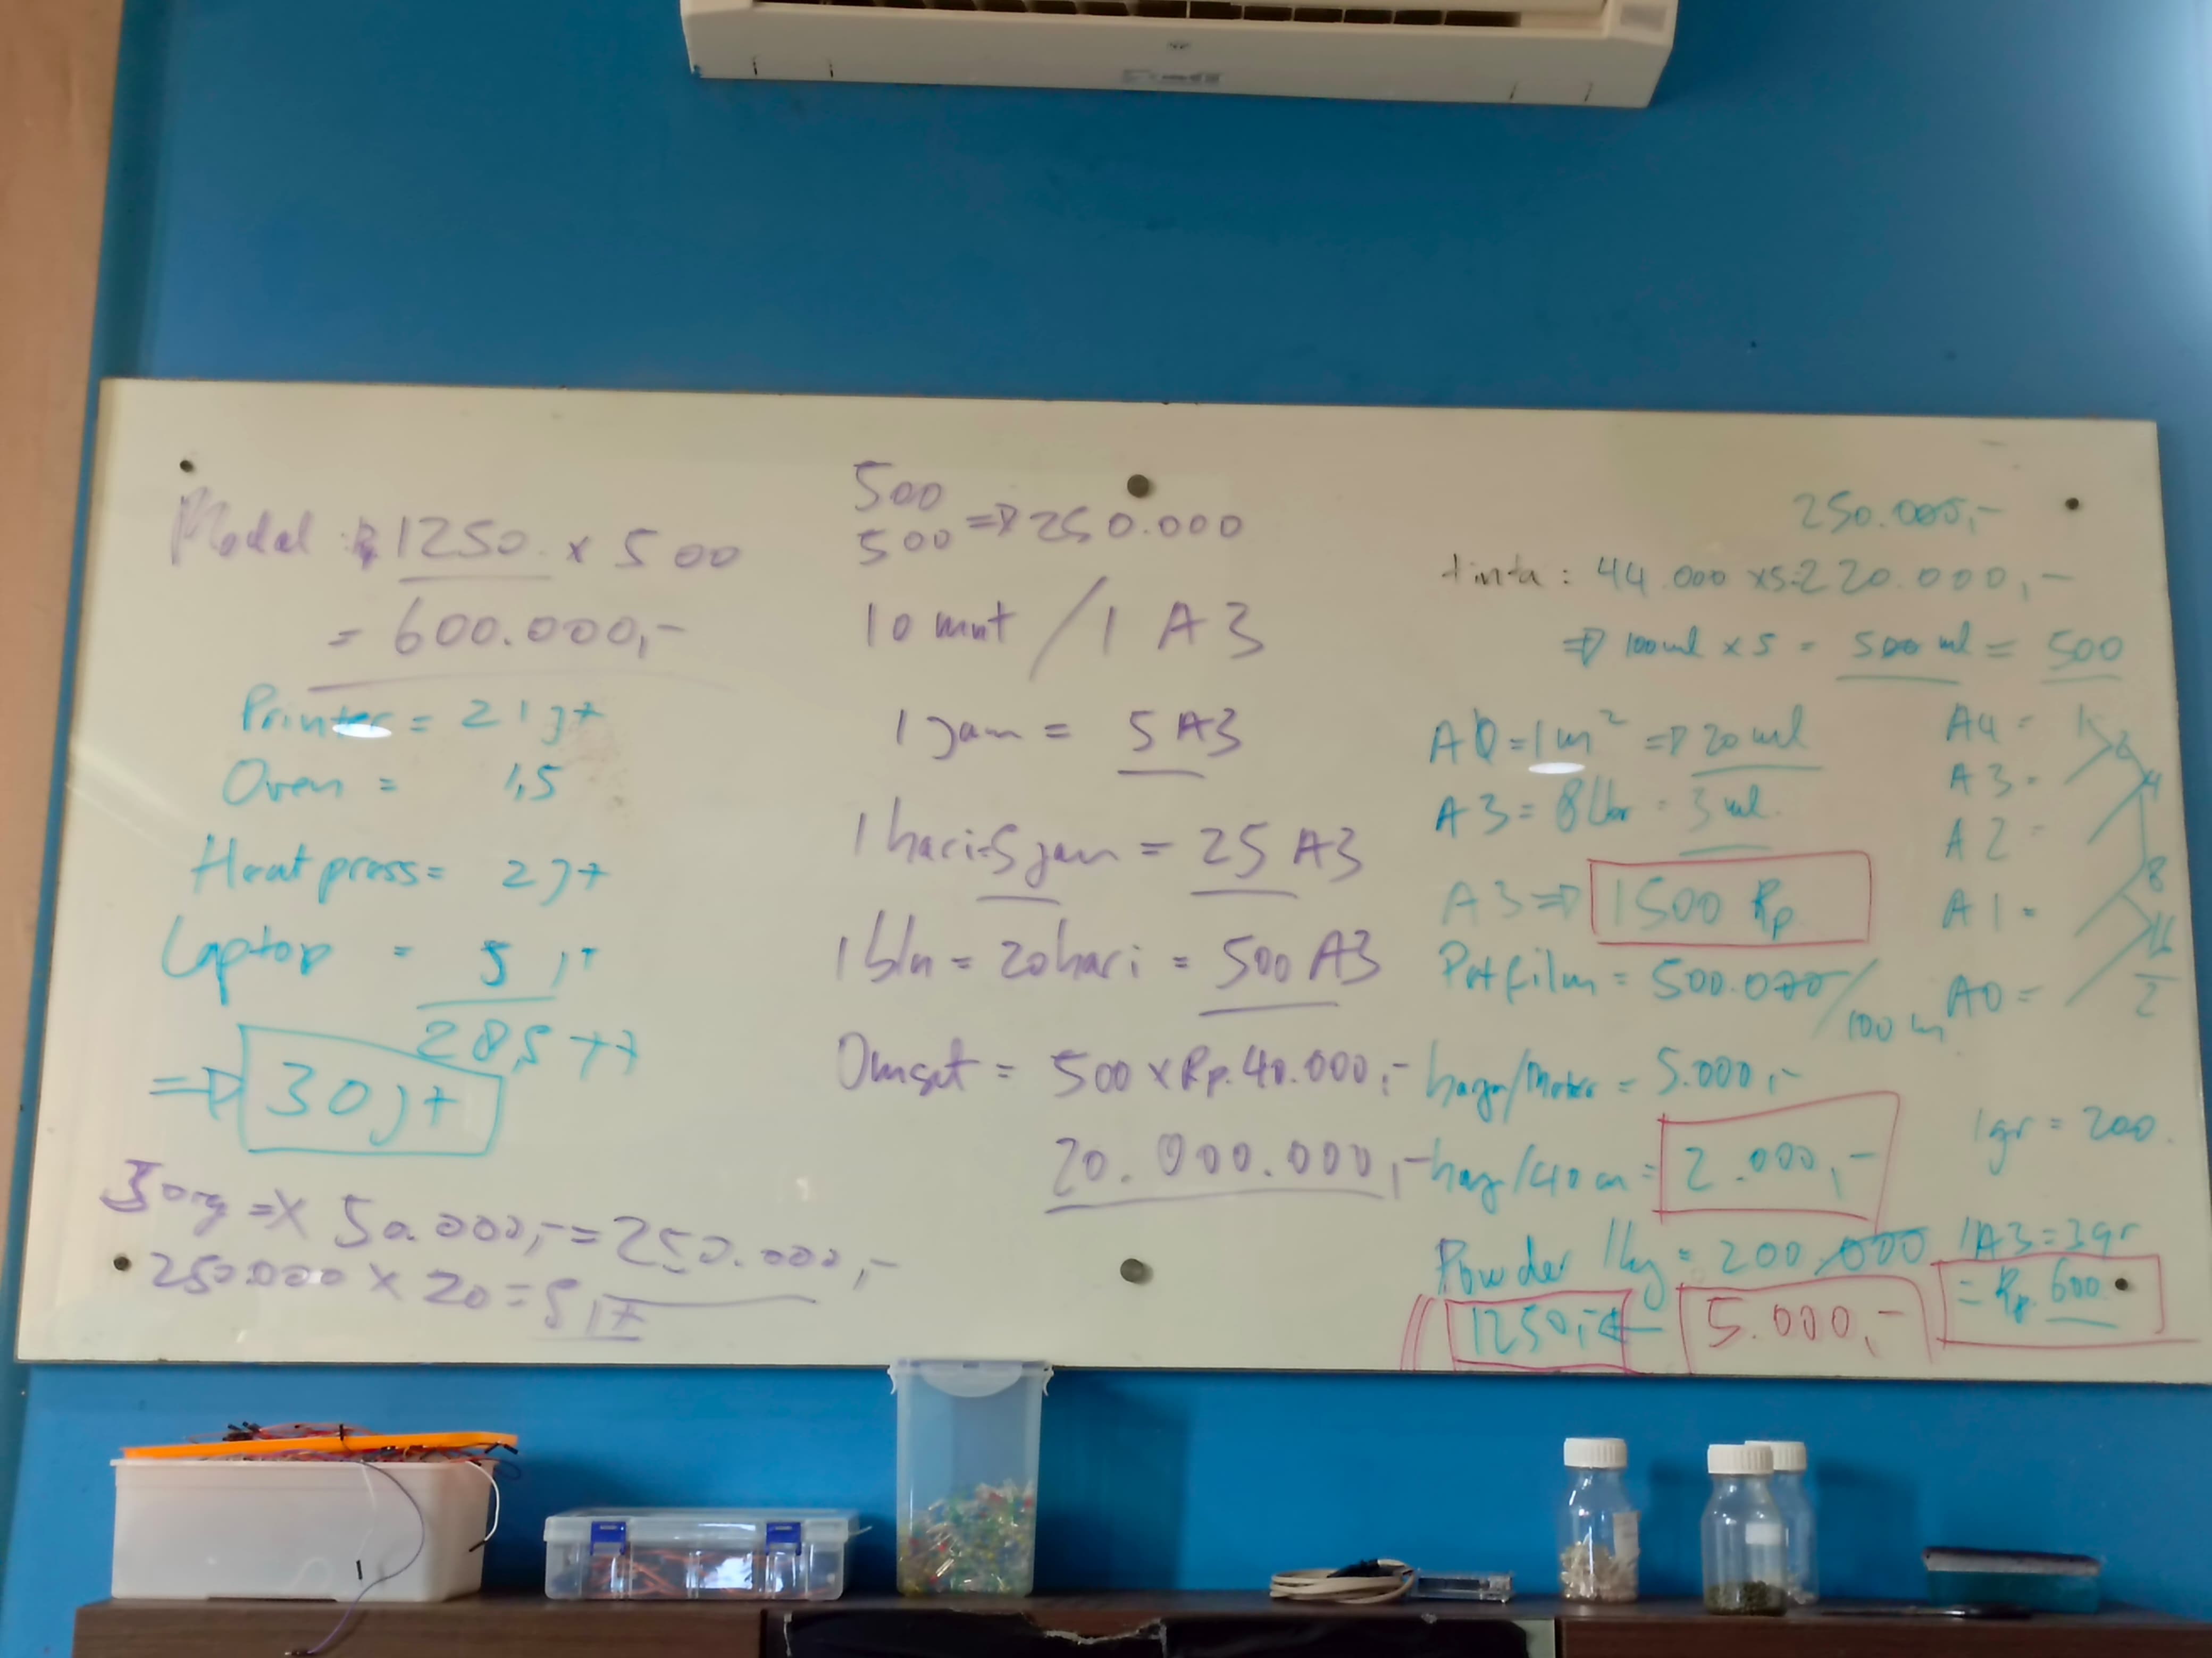 Modal : Rp 1250 x 500
= 600.000,-
Printer = 21 jt
Oven = 1,5
Heat press = 2 jt
Laptop = 5 jt
28,5 jt
=> 30 jt
x 50.000,- = 250.000,-
250.000 x 20 = 5 jt
500
500 => 250.000
10 mnt / 1 A3
1 jam = 5 A3
1 hari = 5 jam = 25 A3
1 bln = 20 hari = 500 A3
Omset = 500 x Rp. 40.000,-
20.000.000,-
250.000,-
tinta : 44.000 x 5 = 220.000,-
=> 100 ml x 5 = 500 ml = 500
A0 = 1 m² => 20 ml
A3 = 8 lbr = 3 ml
A3 => 1500 Rp
Pet film = 500.000 / 100 m
harga/meter = 5.000,-
harg/40 cm = 2.000,-
Powder 1 kg = 200.000
1250,- <- 5.000,-
A4 = 1
2
A3 =
4
A2 =
8
A1 =
16
A0 =
2
1 gr = 200
1 A3 = 3 gr
= Rp. 600